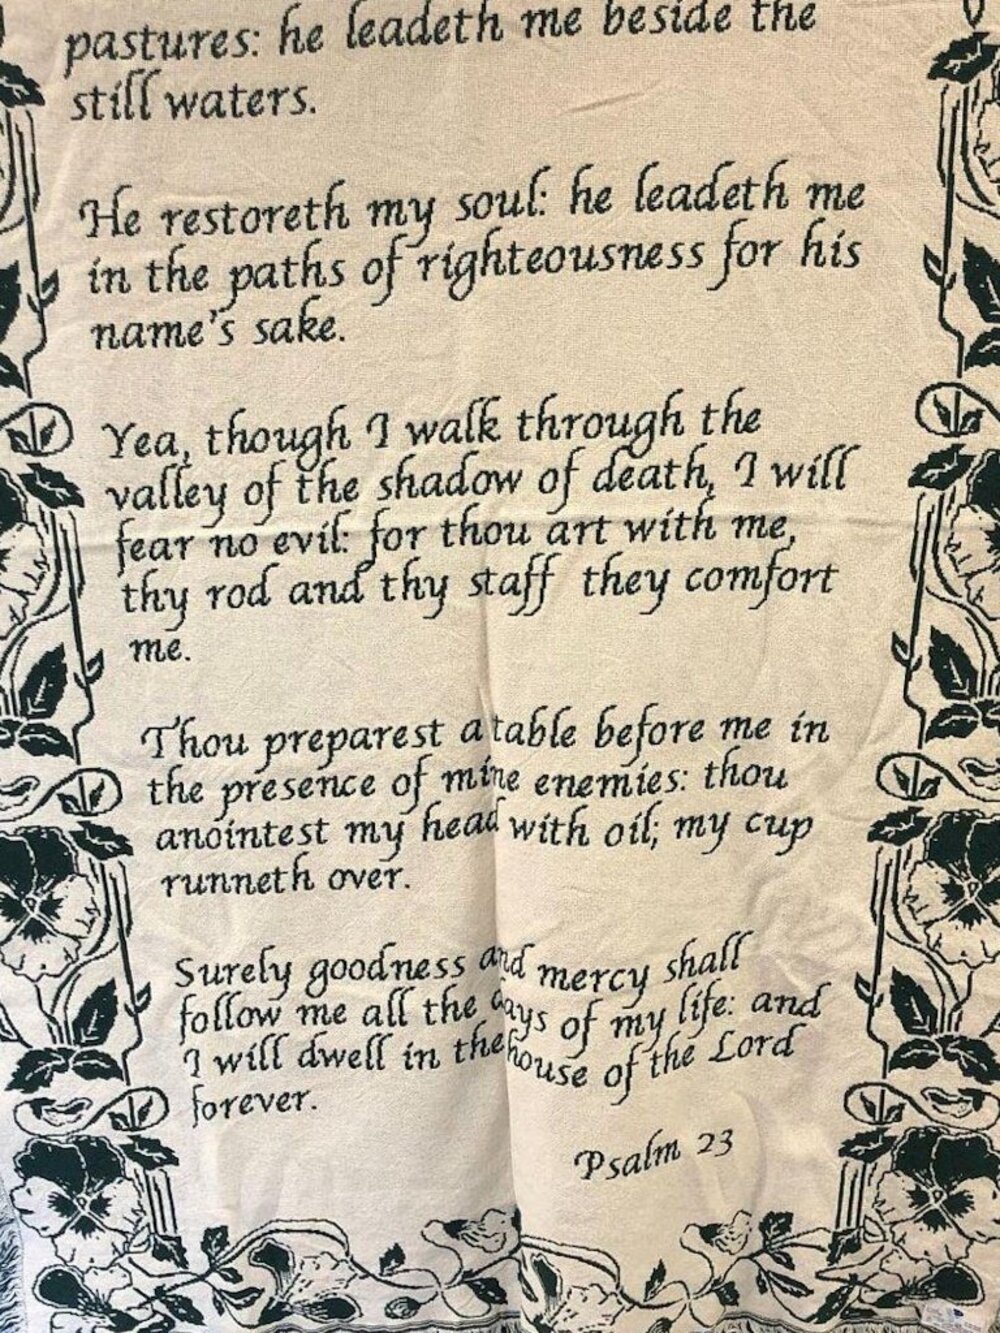 pastures: he leadeth me beside the
still waters.
He restoreth my soul: he leadeth me
in the paths of righteousness for his
name's sake.
Yea, though I walk through the
valley of the shadow of death, I will
fear no evil: for thou art with me,
thy rod and thy staff they comfort
me.
Thou preparest a table before me in
the presence of mine enemies: thou
anointest my head with oil; my cup
runneth over.
Surely goodness and mercy shall
follow me all the days of my life: and
I will dwell in the house of the Lord
forever.
Psalm 23